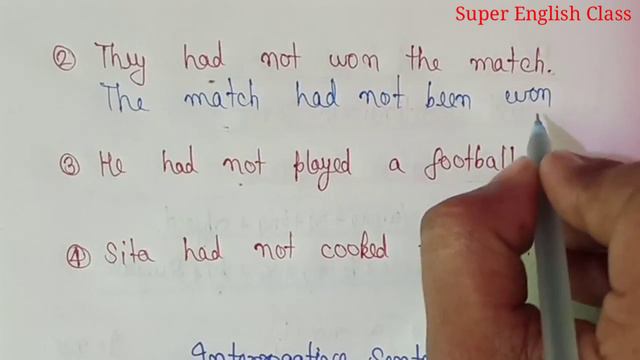 Super English Class
② They had not won the match.
The match had not been won
③ He had not played a football
④ Sita had not cooked